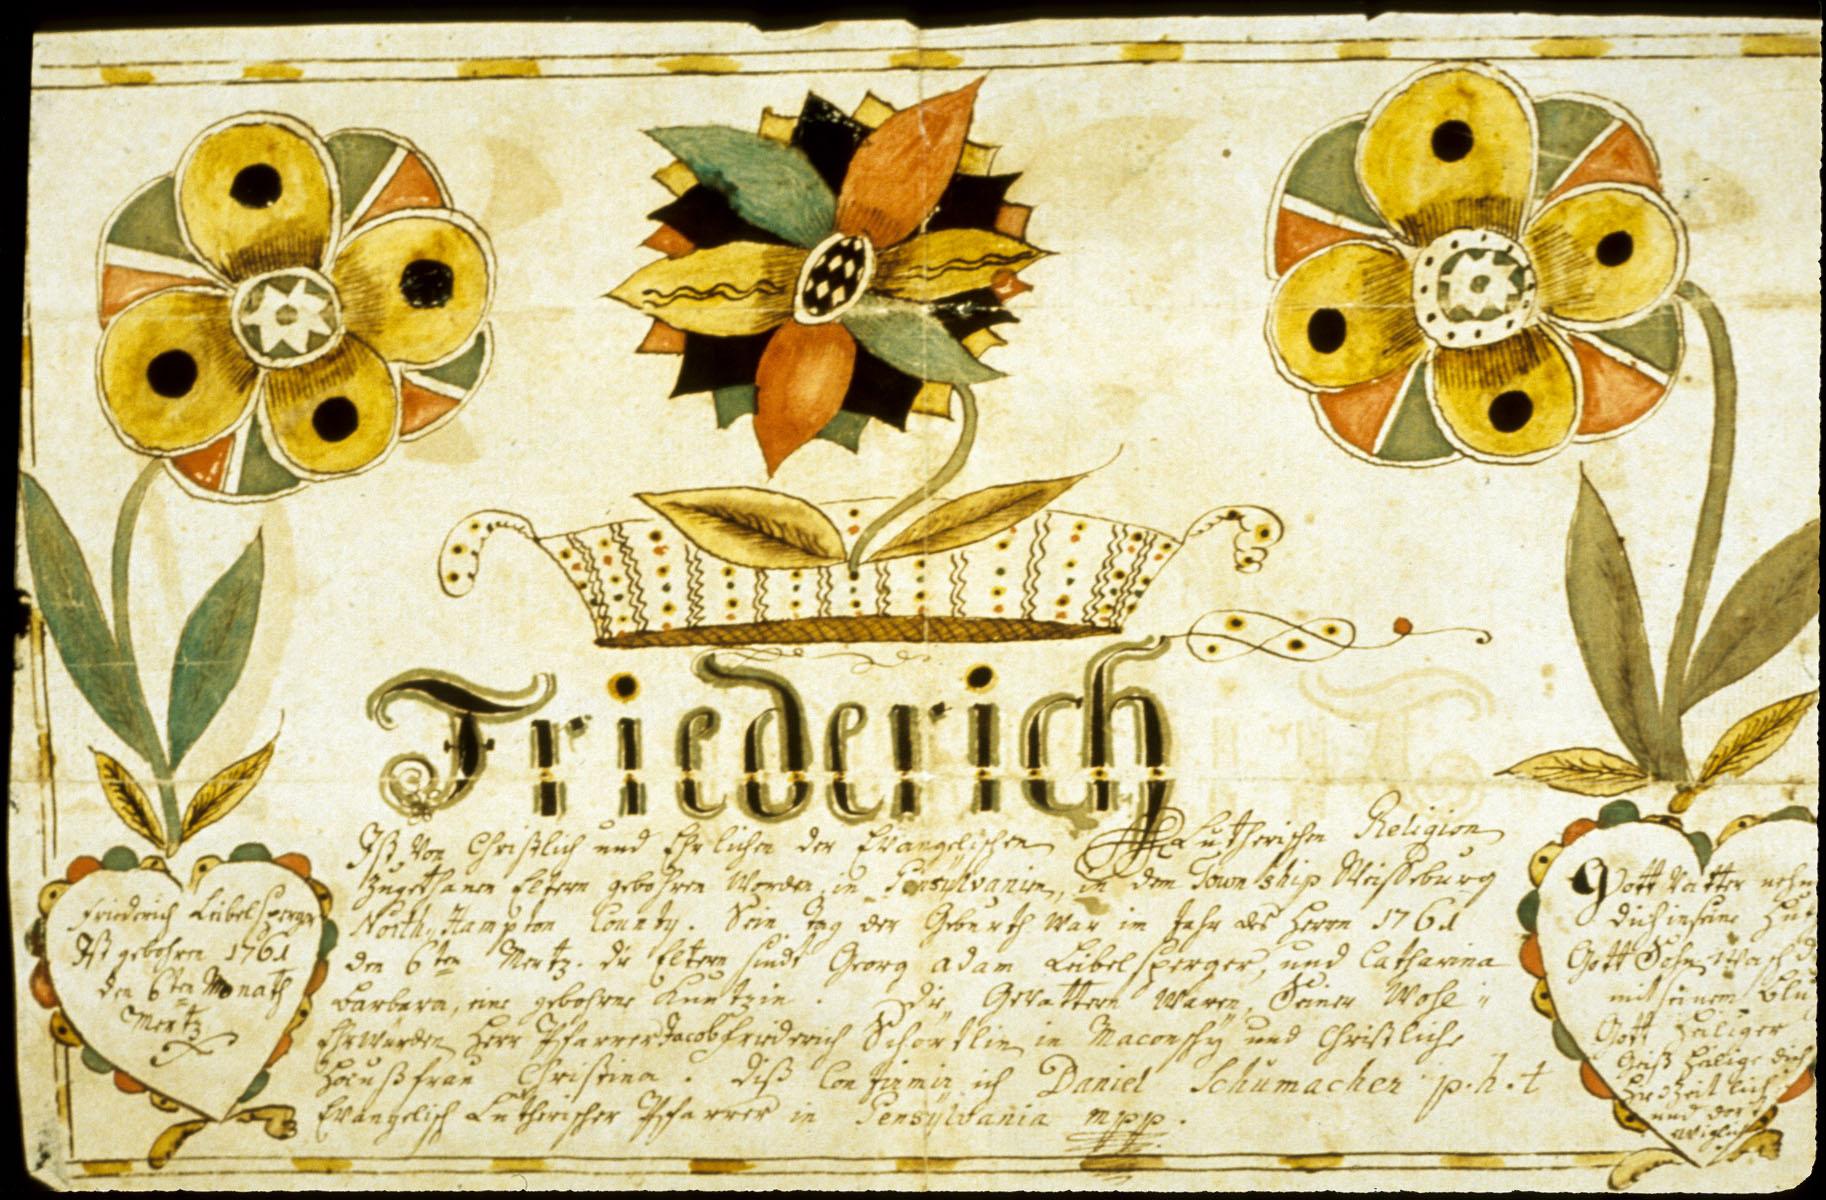 Friederich
Ist von Christlich und Ehrlichen der Evangelischen Lutherischen Religion
Zugethanen Eltern gebohren worden, in Pensylvanien, in dem Township Weisseburg
North Hampton County. Sein tag der Geburth war im Jahr des Herrn 1761
den 6ten Mertz. die Eltern sindt Georg adam Leibelsperger, und Catharina
barbara, eine gebohrne Kuntzin. Die Gevattern waren Seiner Wohl
Ehrwürden Herr Pfarrer Jacob Friederich Schertlin in Maconschy und Christliche
Haußfrau Christina. Diß Confirmir ich Daniel Schumacher p.h.t
Evangelisch Lutherischer Pfarrer in Pensylvania mpp.
Friederich Leibelsperger
Ist gebohren 1761
den 6ten Monath
Mertz
Gott Vatter nehm
dich in seine Hut
Gott Sohn Wasch d
mit seinem Blu
Gott Heiliger
Geist Heilige dich
Hir Zeitlich
und dort
Ewiglich